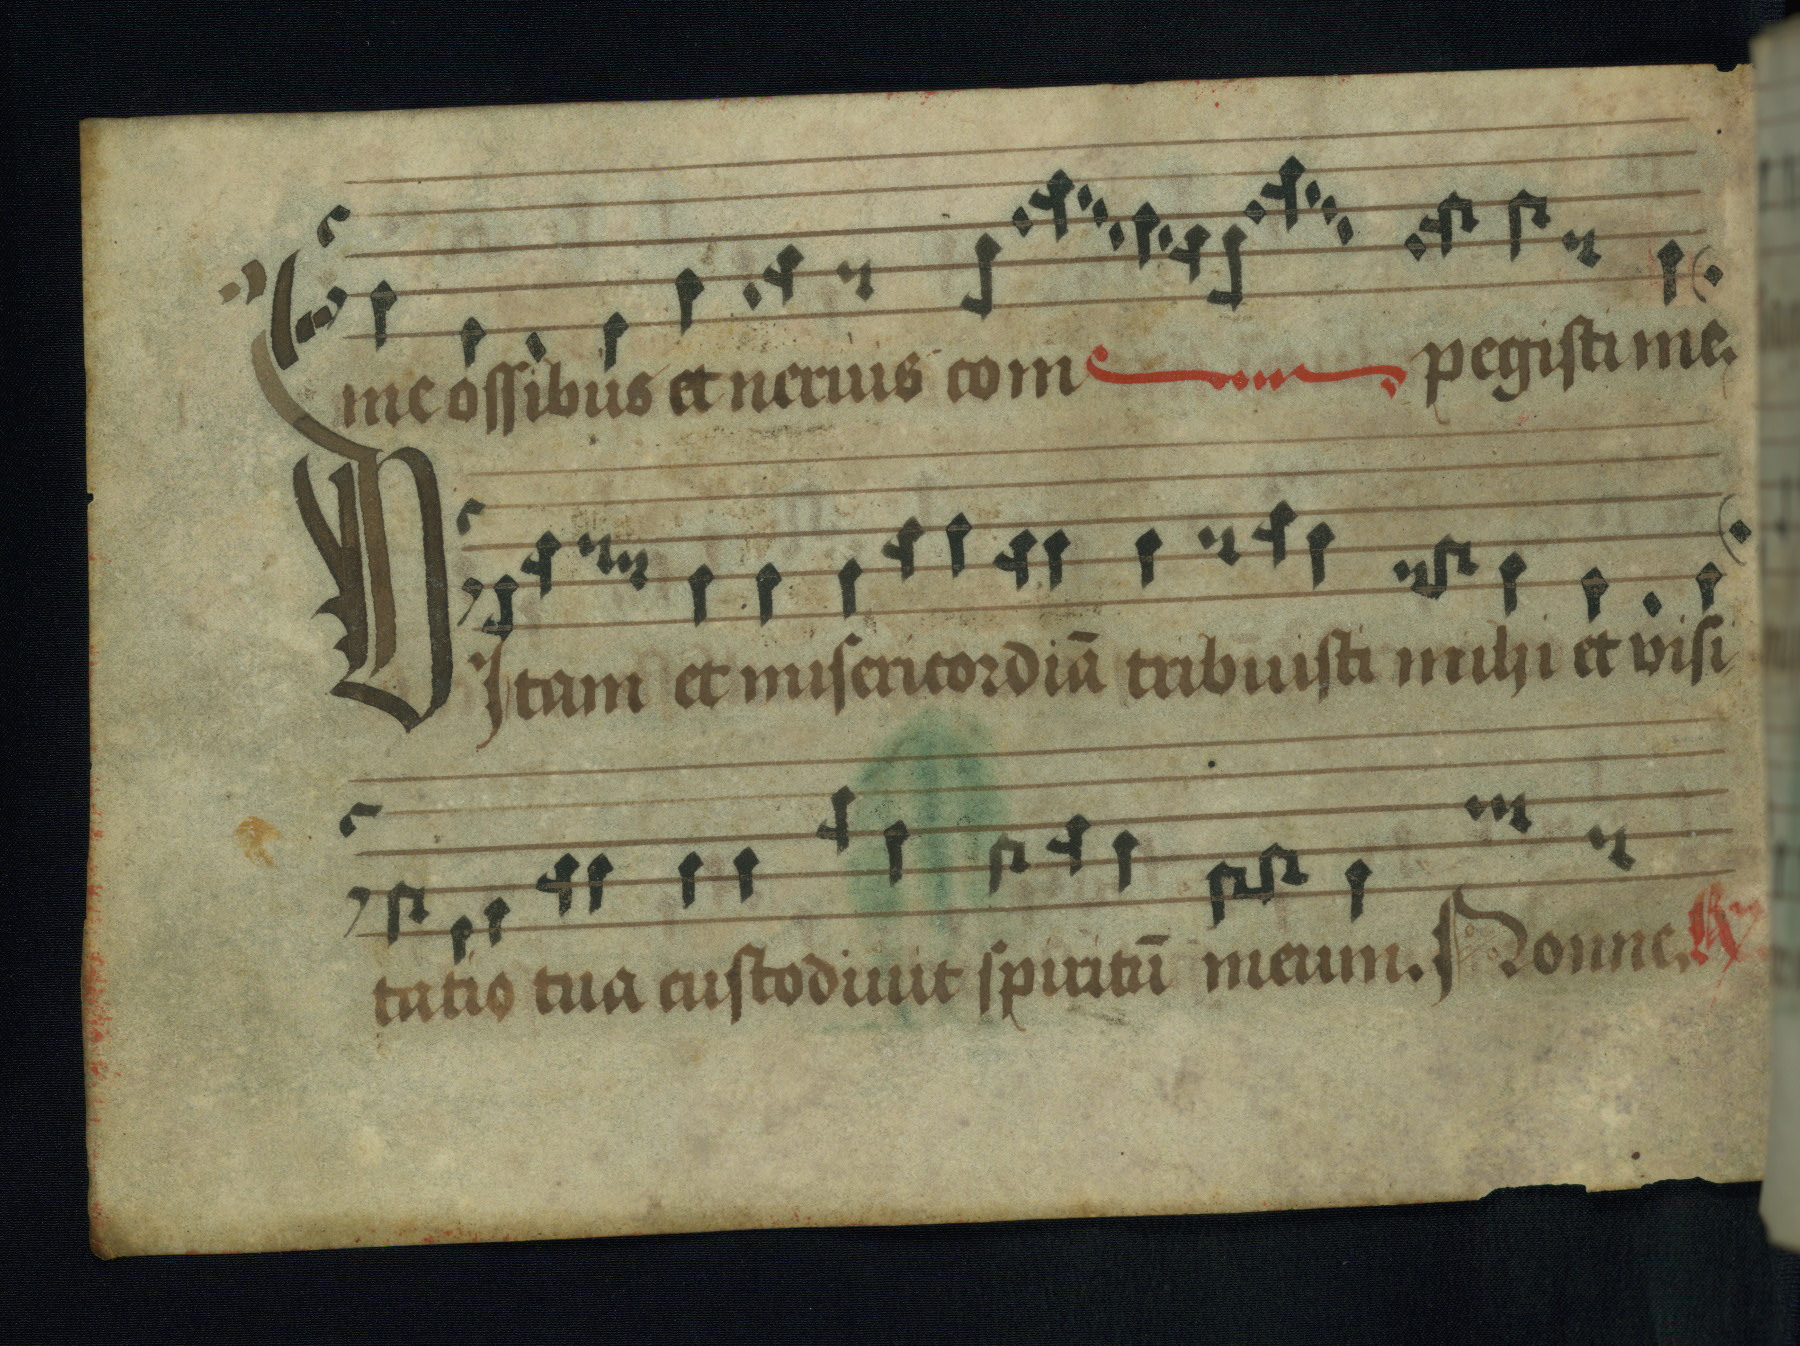 me ossibus et neruis com pegisti me.
VItam et misericordiā tribuisti mihi et visi
tatio tua custodiuit spiritū meum. Nonne. R